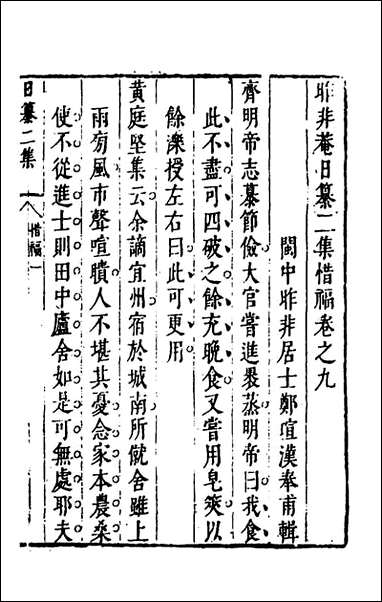 昨非菴日纂二集惜福卷之九
閩中昨非居士鄭瑄漢奉甫輯
齊明帝志慕節儉大官嘗進裹蒸明帝曰我食
此不盡可四破之餘充晚食又嘗用皂莢以
餘濼授左右曰此可更用
黃庭堅集云余謫宜州宿於城南所僦舍雖上
雨旁風市聲喧聵人不堪其憂念家本農桑
使不從進士則田中廬舍如是可無處耶夫
日纂二集
惜福一